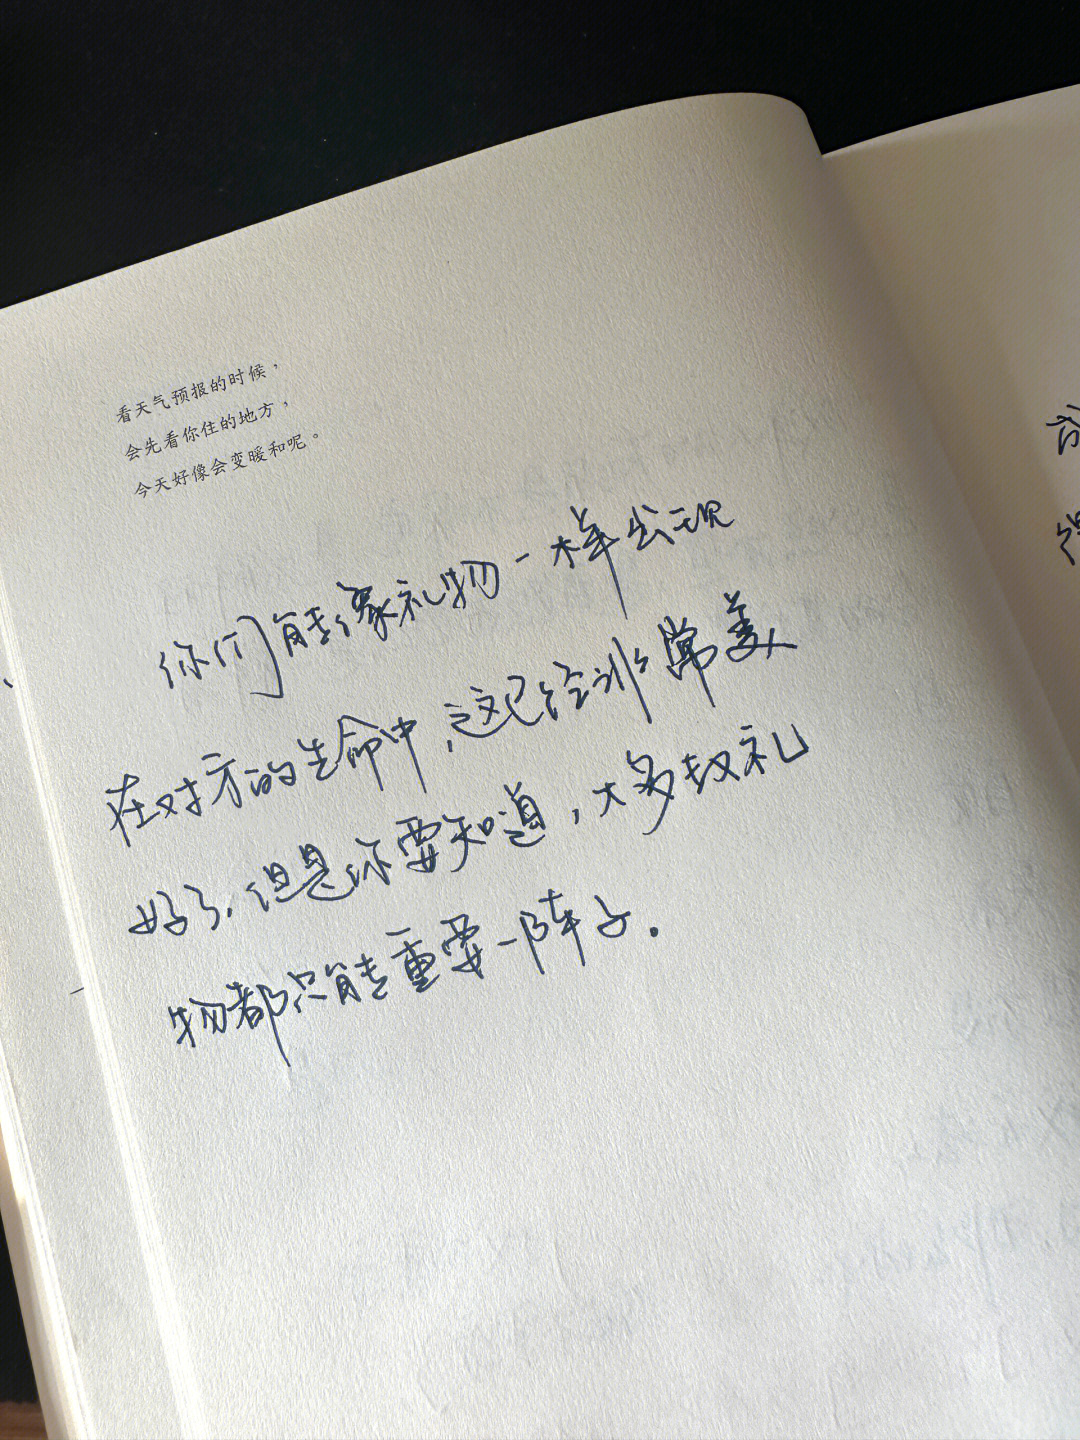 看天气预报的时候，
会先看你住的地方，
今天好像会变暖和呢。
你们能像礼物一样出现
在对方的生命中，这已经非常美
好了，但是你要知道，大多数礼
物都只能重要一阵子.